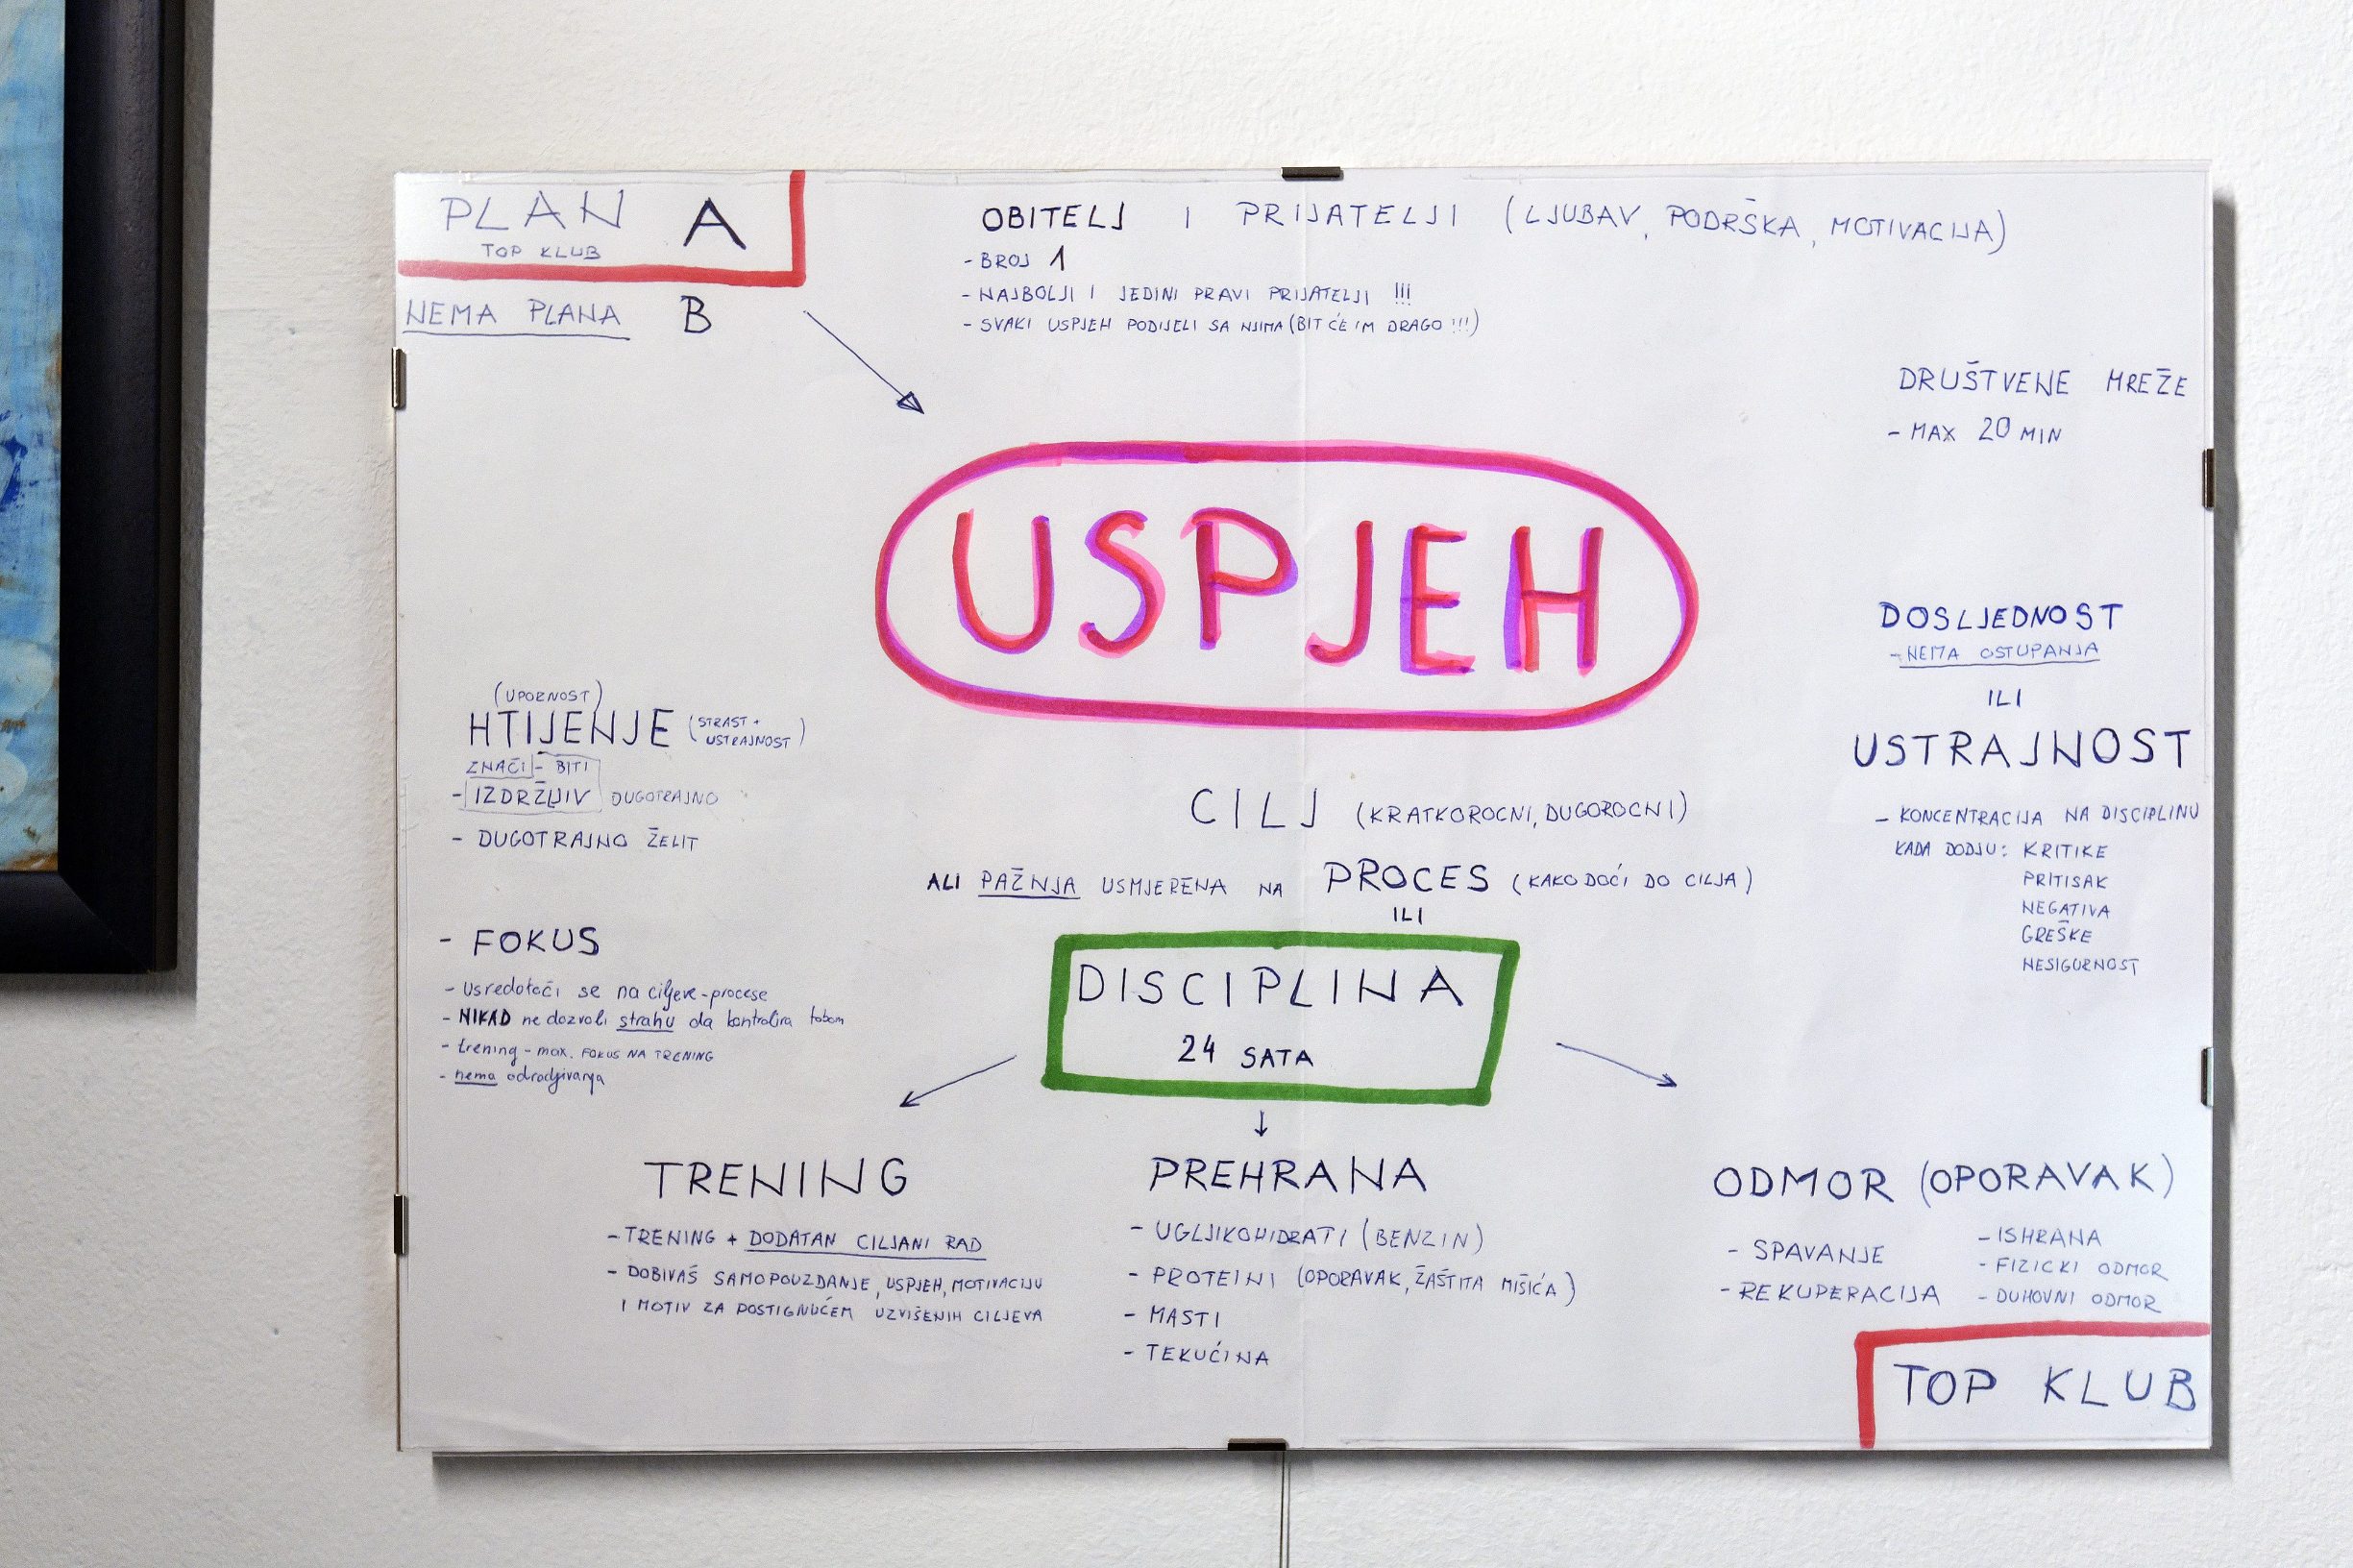 PLAN A
TOP KLUB
NEMA PLANA B
OBITELJ I PRIJATELJI (LJUBAV, PODRŠKA, MOTIVACIJA)
- BROJ 1
- NAJBOLJI I JEDINI PRAVI PRIJATELJI !!!
- SVAKI USPJEH PODIJELI SA NJIMA (BIT ĆE IM DRAGO !!!)
DRUŠTVENE MREŽE
- MAX 20 MIN
USPJEH
DOSLJEDNOST
- NEMA OSTUPANJA
ILI
USTRAJNOST
- KONCENTRACIJA NA DISCIPLINU
KADA DODJU: KRITIKE
PRITISAK
NEGATIVA
GREŠKE
NESIGURNOST
(UPORNOST)
HTIJENJE (STRAST + USTRAJNOST)
ZNAČI - BITI
- IZDRŽLJIV DUGOTRAJNO
- DUGOTRAJNO ŽELIT
CILJ (KRATKOROCNI, DUGOROCNI)
ALI PAŽNJA USMJERENA NA PROCES (KAKO DOĆI DO CILJA)
ILI
DISCIPLINA
24 SATA
- FOKUS
- Usredotoči se na ciljeve-procese
- NIKAD ne dozvoli strahu da kontrolira tobom
- trening - max. FOKUS NA TRENING
- nema odradjivanja
TRENING
- TRENING + DODATAN CILJANI RAD
- DOBIVAŠ SAMOPOUZDANJE, USPJEH, MOTIVACIJU
I MOTIV ZA POSTIGNUĆEM UZVIŠENIH CILJEVA
PREHRANA
- UGLJIKOHIDRATI (BENZIN)
- PROTEINI (OPORAVAK, ZAŠTITA MIŠIĆA)
- MASTI
- TEKUĆINA
ODMOR (OPORAVAK)
- SPAVANJE
- REKUPERACIJA
- ISHRANA
- FIZICKI ODMOR
- DUHOVNI ODMOR
TOP KLUB